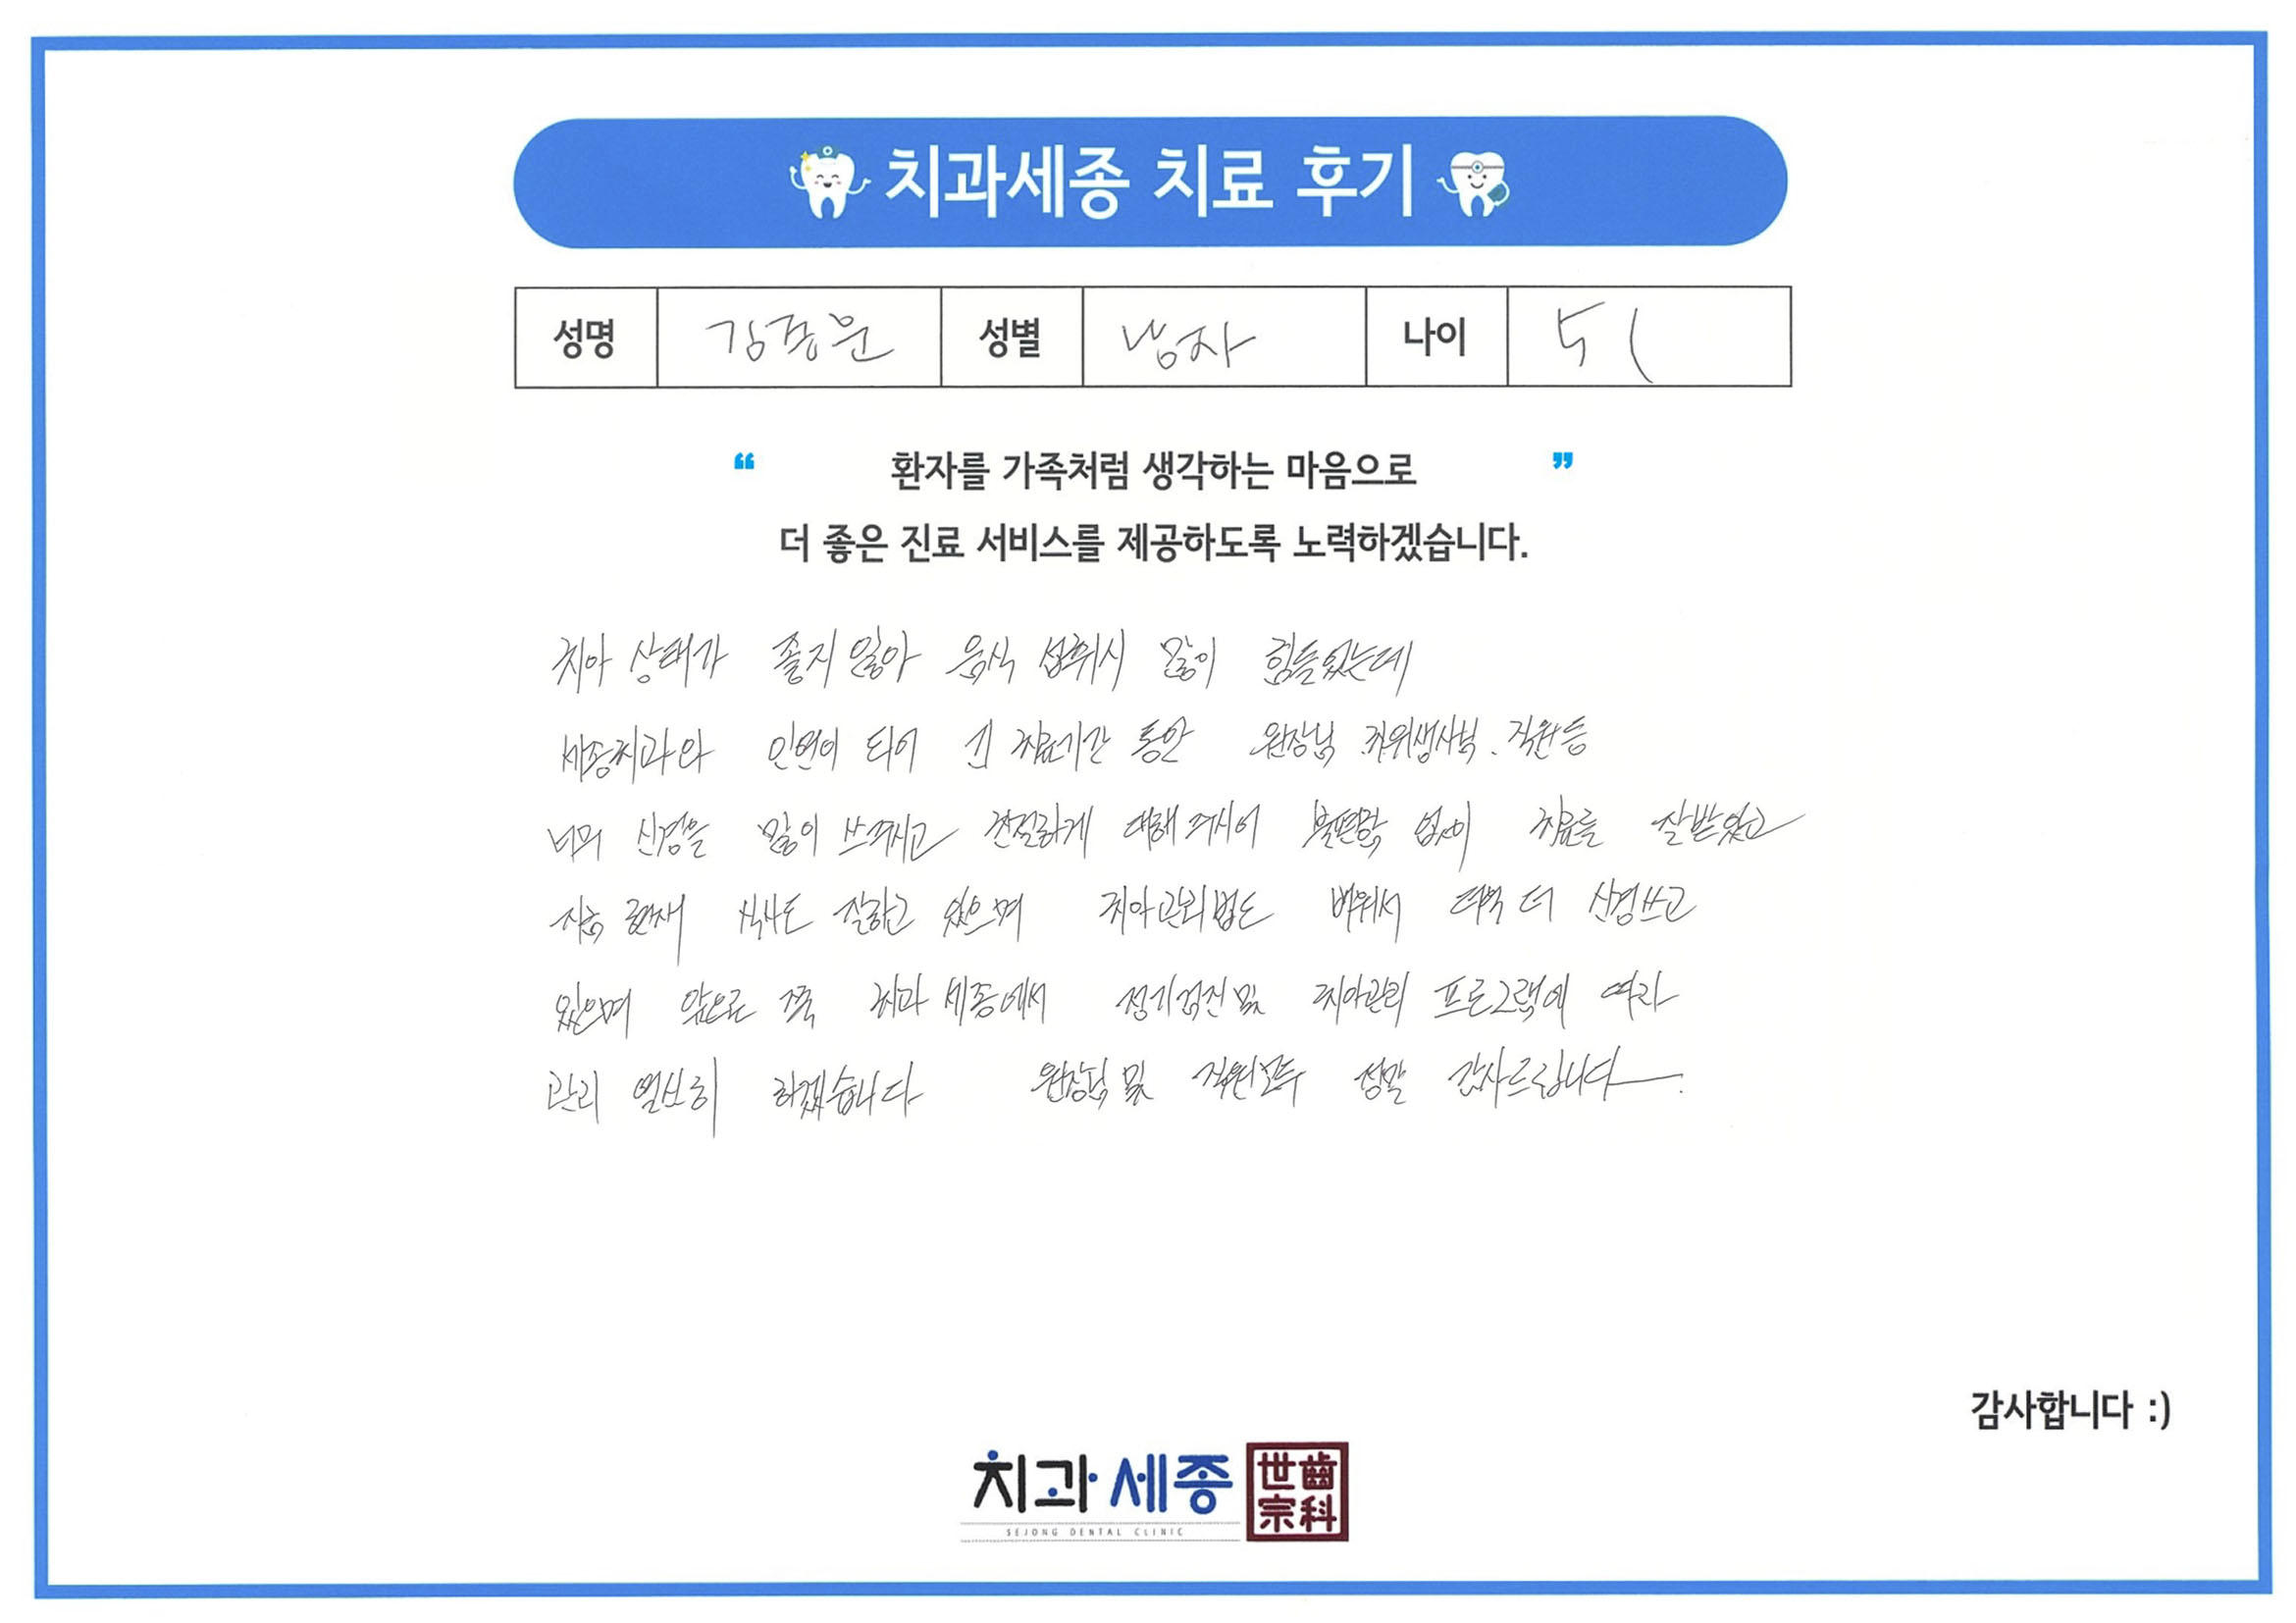 치과세종 치료 후기
성명 김종문 성별 남자 나이 51
“ 환자를 가족처럼 생각하는 마음으로 ”
더 좋은 진료 서비스를 제공하도록 노력하겠습니다.
치아 상태가 좋지 않아 음식 섭취시 많이 힘들었는데
세종치과와 인연이 되어 긴 치료기간 동안 원장님.치위생사님.직원등
너무 신경을 많이 쓰쥬시고 친절하게 대해 주시어 불편함 없이 치료를 잘받았고
지금 현재 식사도 잘하고 있으며 치아관리법도 배워서 더욱 더 신경쓰고
있으며 앞으로 쭉 치과 세종에서 정기검진 및 치아관리 프로그램에 따라
관리 열심히 하겠습니다 원장님 및 직원모두 정말 감사드립니다.
감사합니다 :)
치과세종
世齒
宗科
SEJONG DENTAL CLINIC